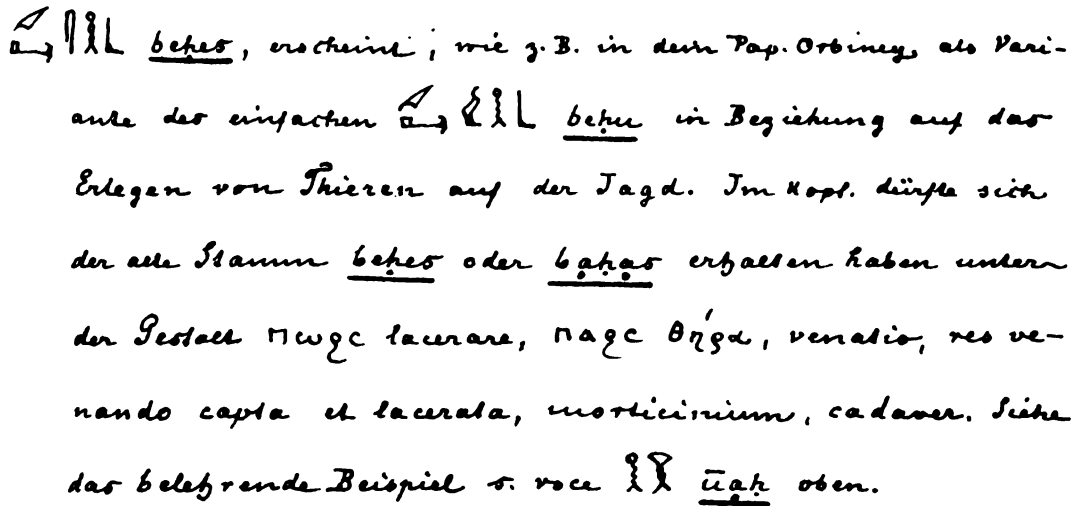 beḥes, erscheint, wie z. B. in dem Pap. Orbiney, als Vari-
ante des einfachen beḥu in Beziehung auf das
Erlegen von Thieren auf der Jagd. Im Kopt. dürfte sich
der alte Stamm beḥes oder bạḥạs erhalten haben unter
der Gestalt ⲡⲱϩⲥ lacerare, ⲡⲁϩⲥ θήρα, venatio, res ve-
nando capta et lacerata, morticinium, cadaver. Siehe
das belehrende Beispiel s. voce ūạḥ oben.